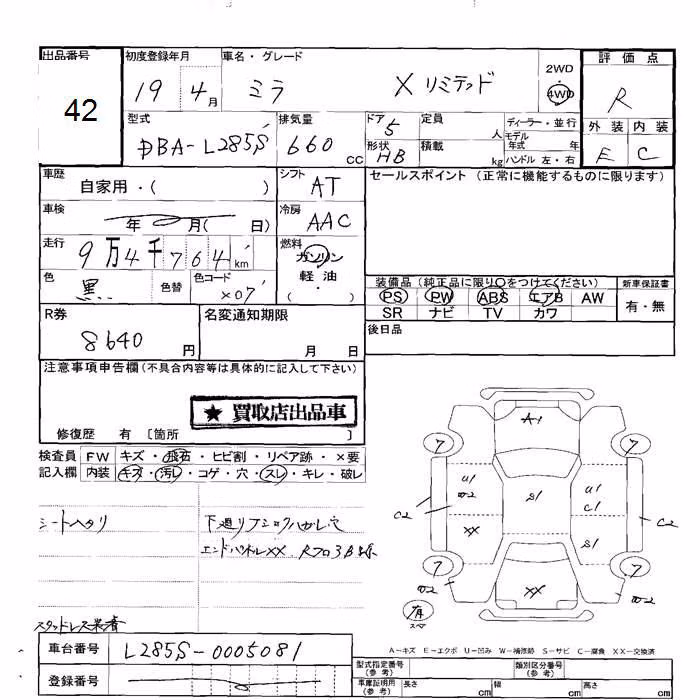 出品番号
42
初度登録年月
19 4月
車名・グレード
ミラ X リミテッド
2WD
4WD
評価点
R
外装 内装
E C
型式
DBA-L285S
排気量
660 cc
ドア 5
形状 HB
定員 人
積載 kg
ディーラー・並行
モデル年式 年
ハンドル 左・右
車歴
自家用・( )
シフト
AT
セールスポイント (正常に機能するものに限ります)
車検
年 月( 日)
冷房
AAC
走行
9万4千764 km
燃料
ガソリン
軽・油
( ・ )
色
黒
色替
色コード
X07
装備品 (純正品に限り○をつけてください)
PS PW ABS エアB AW
SR ナビ TV カワ
新車保証書
有・無
R券
8640 円
名変通知期限
月 日
後日品
注意事項申告欄 (不具合内容等は具体的に記入して下さい)
★ 買取店出品車
修復歴 有 〔箇所 〕
検査員記入欄
FW キズ・飛石・ヒビ割・リペア跡・×要
内装 キズ・汚レ・コゲ・穴・スレ・キレ・破レ
シートヘタリ
エンドパネルXX
スタッドレス装着
A1
7
7
U1
C2
S1
U1
C1
C2
XX
S1
7
7
XX
有
スペ
A-キズ E-エクボ U-凹み W-補修跡 S-サビ C-腐食 XX-交換済
車台番号
L285S-0005081
登録番号
型式指定番号
(参考)
類別区分番号
(参考)
車庫証明用
(参考)
長さ cm
幅 cm
高さ cm